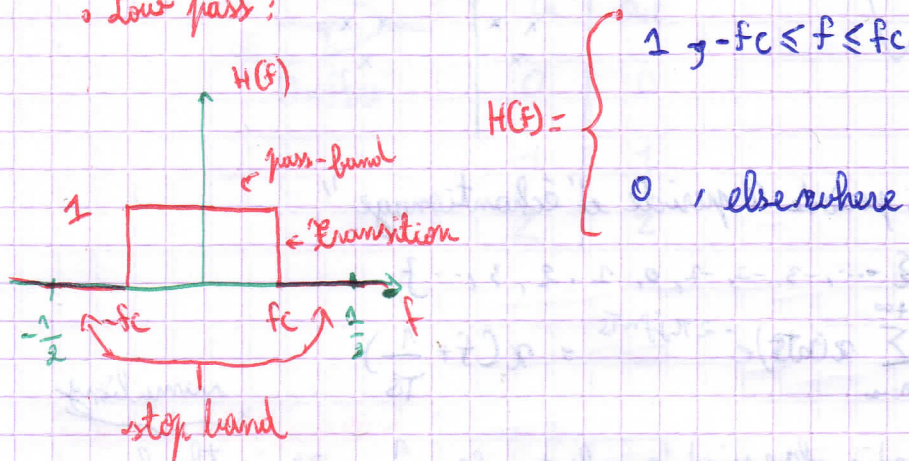 • Low pass:
H(f)
pass-band
1
transition
-1/2
-fc
fc
1/2
f
stop band
H(f) =
1 , -fc ≤ f ≤ fc
0 , elsewhere